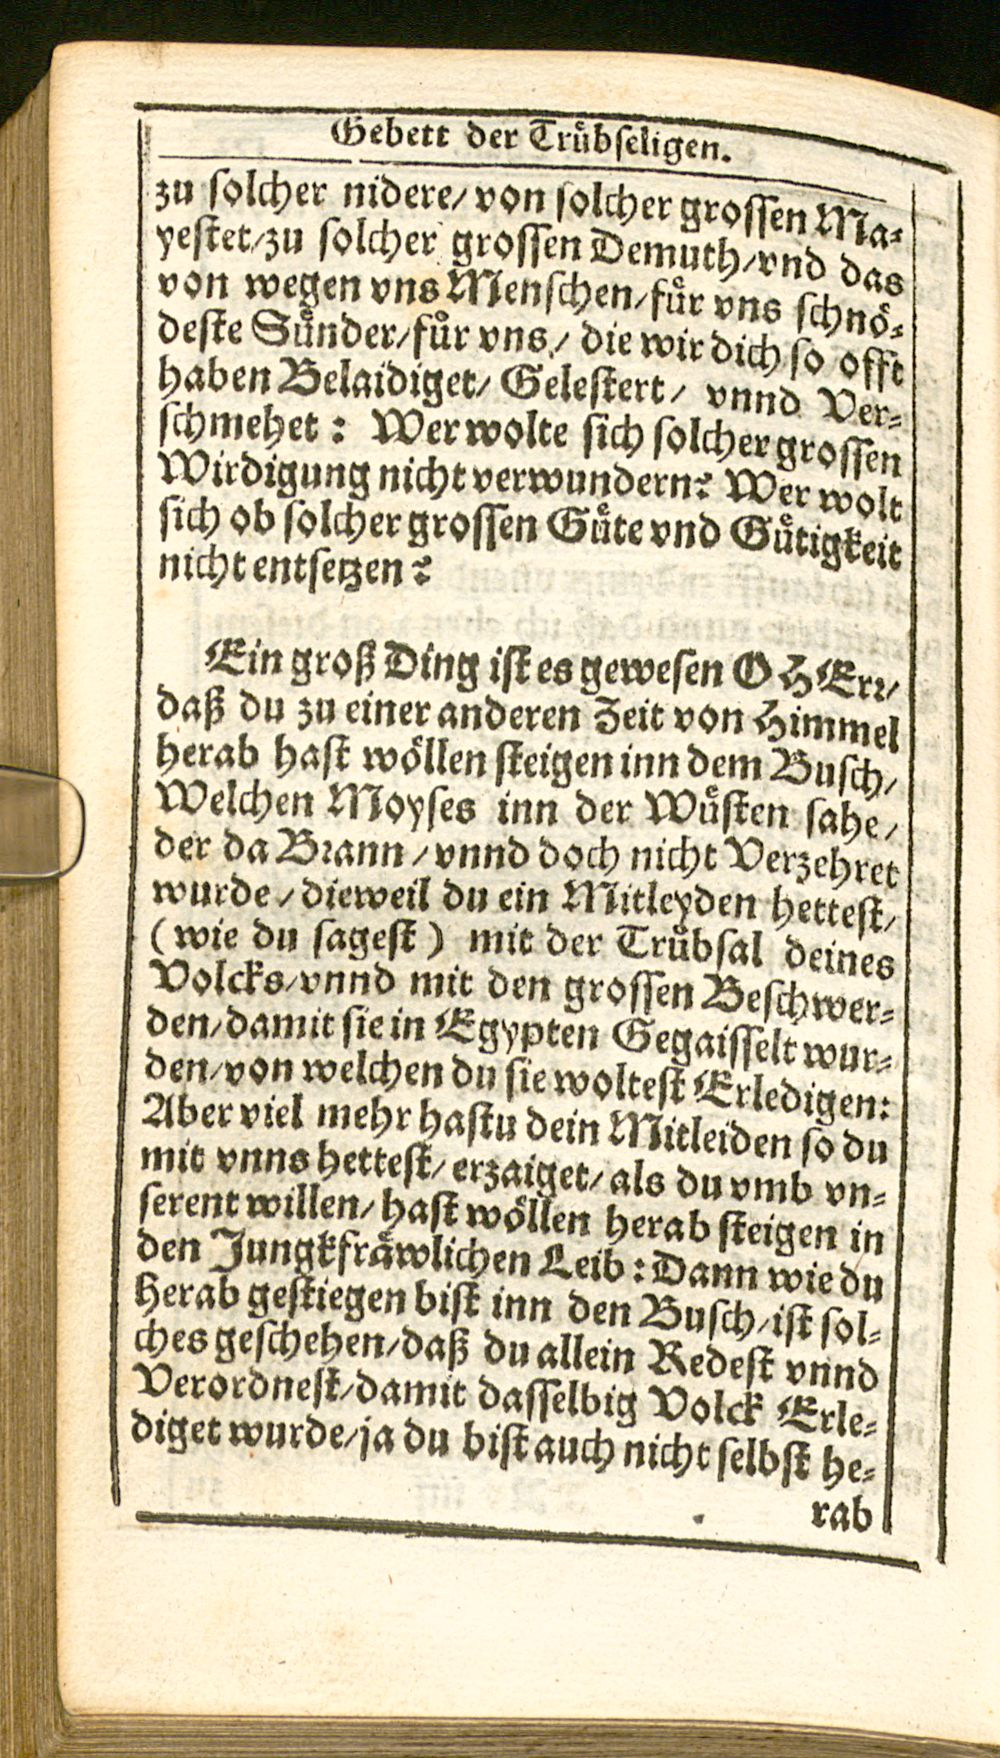 Gebett der Trůbseligen.
zu solcher nidere/ von solcher grossen Ma-
yestet/zu solcher grossen Demuth/vnd das
von wegen vns Menschen/fůr vns schnö-
deste Sůnder/fůr vns/ die wir dich so offt
haben Belaidiget/ Gelestert/ vnnd Ver-
schmehet: Wer wolte sich solcher grossen
Wirdigung nicht verwundern? Wer wolt
sich ob solcher grossen Gůte vnd Gůtigkeit
nicht entsetzen?
Ein groß Ding ist es gewesen O HErr/
daß du zu einer anderen Zeit von Himmel
herab hast wöllen steigen inn dem Busch/
Welchen Moyses inn der Wůsten sahe/
der da Brann/vnnd doch nicht Verzehret
wurde/dieweil du ein Mitleyden hettest/
(wie du sagest) mit der Trůbsal deines
Volcks/vnnd mit den grossen Beschwer-
den/damit sie in Egypten Gegaisselt wur-
den/von welchen du sie woltest Erledigen:
Aber viel mehr hastu dein Mitleiden so du
mit vnns hettest/erzaiget/als du vmb vn-
serent willen/hast wöllen herab steigen in
den Jungkfräwlichen Leib: Dann wie du
Herab gestiegen bist inn den Busch/ist sol-
ches geschehen/daß du allein Redest vnnd
Verordnest/damit dasselbig Volck Erle-
diget wurde/ja du bist auch nicht selbst he-
rab